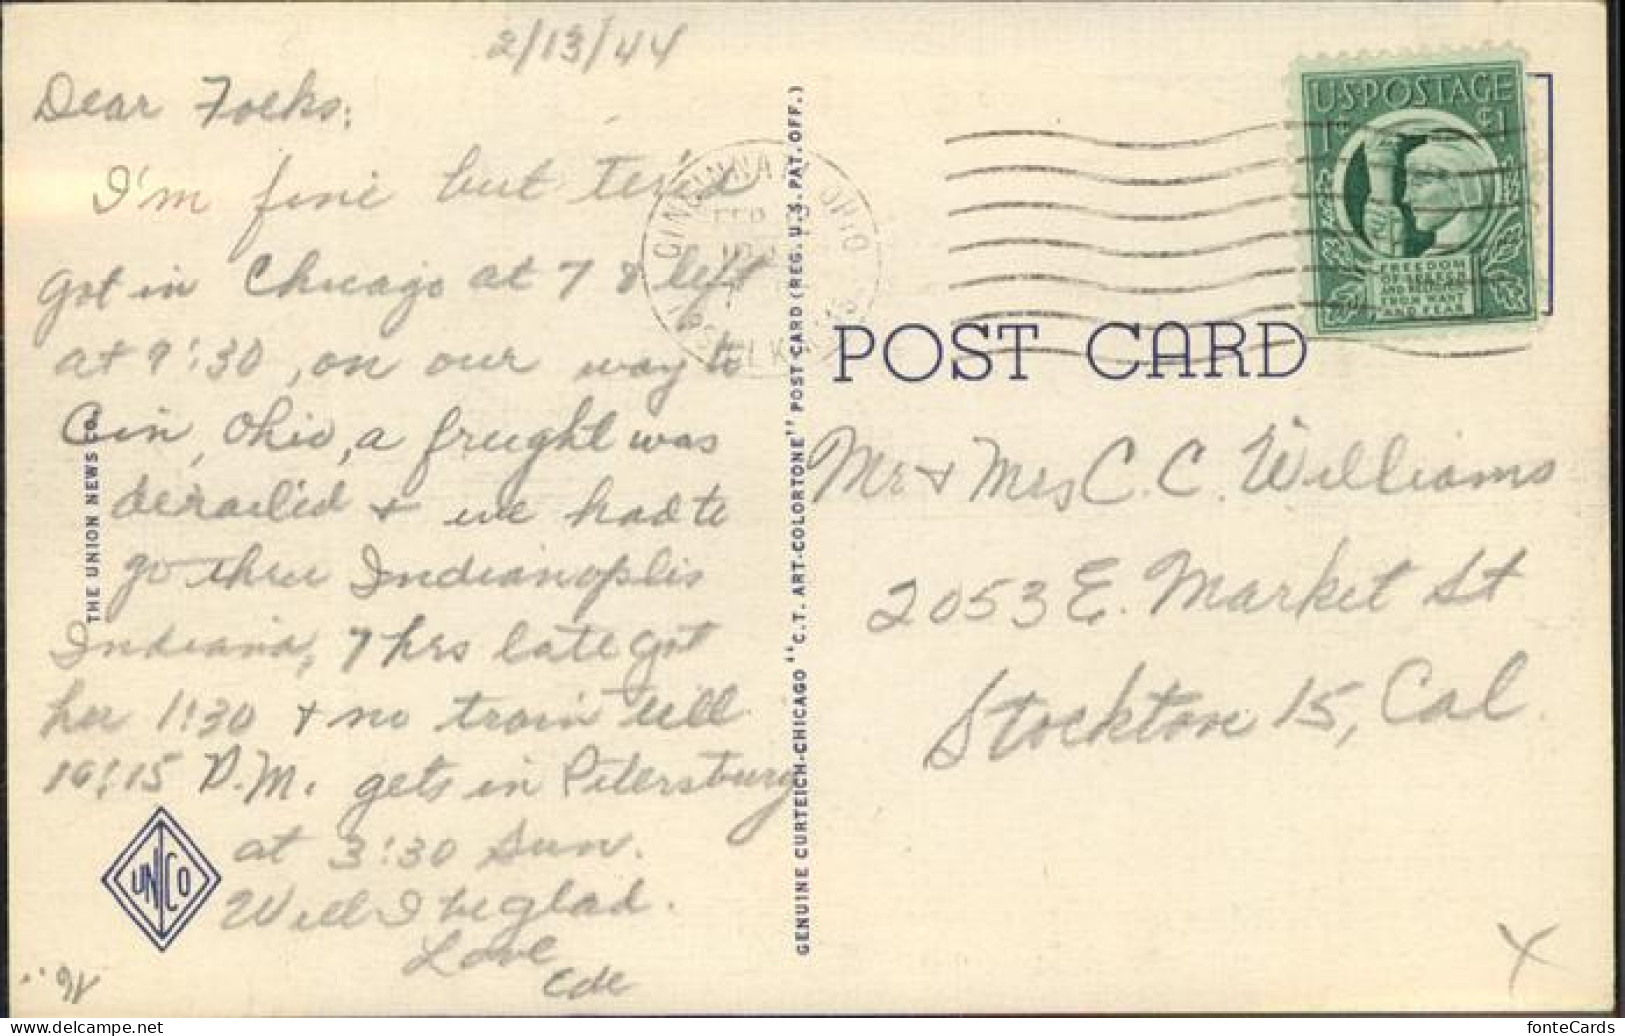 2/13/44
Dear Folks:
I'm fine but tierd
got in Chicago at 7 & left
at 9:30, on our way to
Cin, Ohio, a freight was
derailed & we had to
go thru Indianoplis
Indiana, 7 hrs late got
her 1:30 & no train till
10:15 P.M. gets in Petersburg
at 3:30 Sun.
Will I be glad.
Love
THE UNION NEWS CO.
UNCO
GENUINE CURTEICH-CHICAGO "C.T. ART-COLORTONE" POST CARD (REG. U.S. PAT. OFF.)
CINCINNATI OHIO
FEB
U.S. POSTAGE
1¢ ¢1
FREEDOM
OF SPEECH
AND RELIGION
FROM WANT
AND FEAR
POST CARD
Mr + Mrs C. C. Williams
2053 E. Market St
Stockton 15, Cal.
X
fonteCards